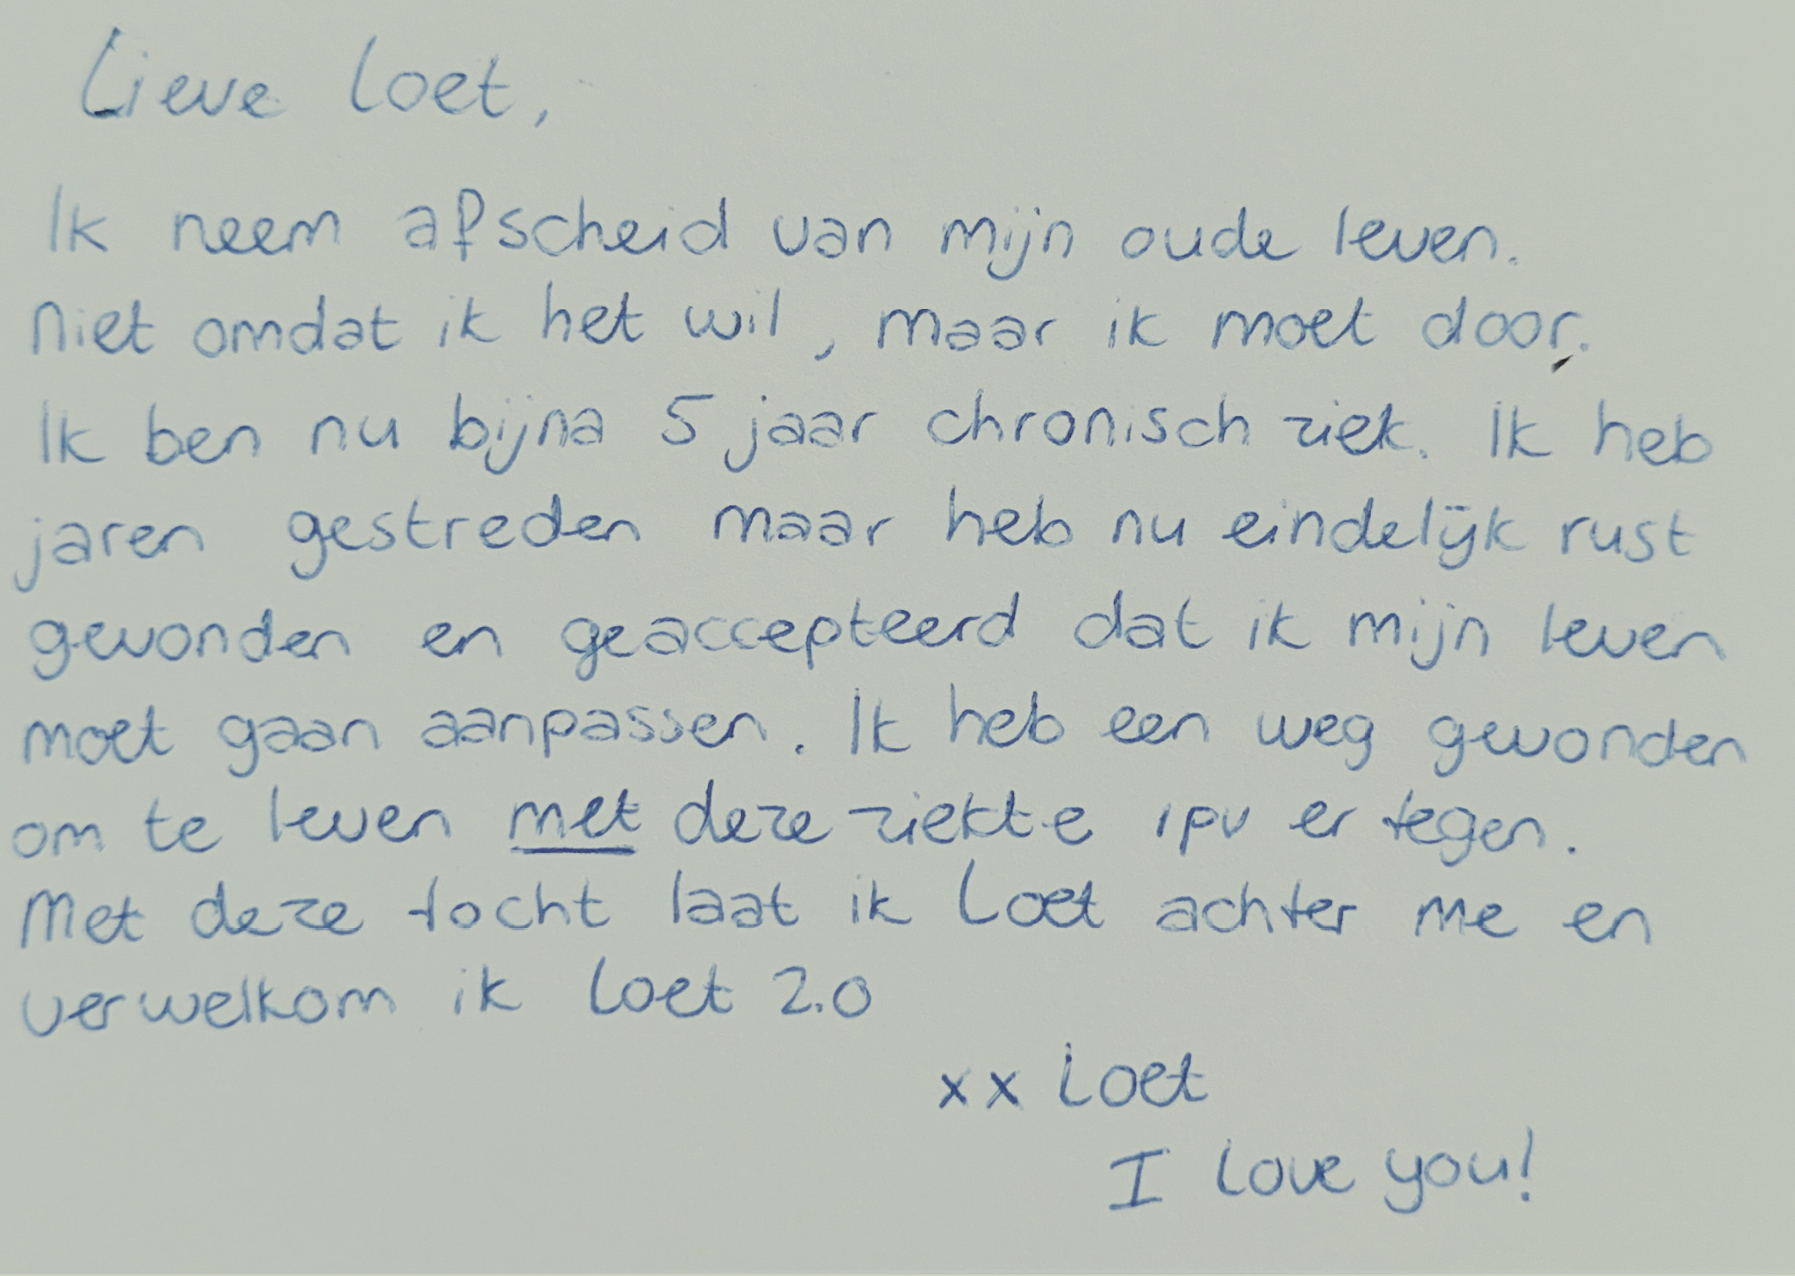 Lieve Loet,
Ik neem afscheid van mijn oude leven.
Niet omdat ik het wil, maar ik moet door.
Ik ben nu bijna 5 jaar chronisch ziek. Ik heb
jaren gestreden maar heb nu eindelijk rust
gevonden en geaccepteerd dat ik mijn leven
moet gaan aanpassen. Ik heb een weg gevonden
om te leven met deze ziekte ipv er tegen.
Met deze tocht laat ik Loet achter me en
verwelkom ik Loet 2.0
xx Loet
I love you!